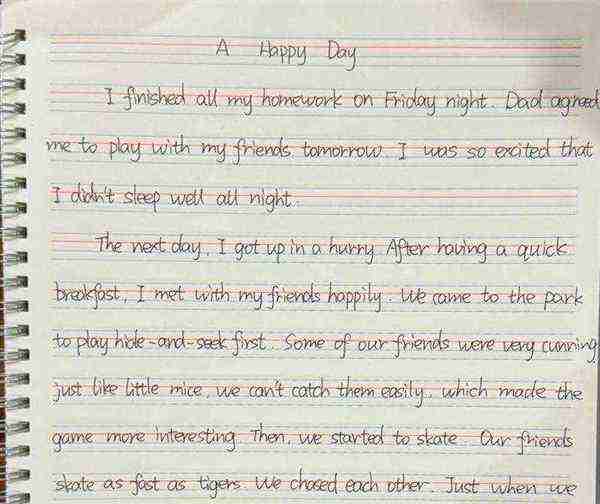 A Happy Day
I finished all my homework on Friday night. Dad agreed
me to play with my friends tomorrow. I was so excited that
I didn't sleep well all night.
The next day, I got up in a hurry. After having a quick
breakfast, I met with my friends happily. We came to the park
to play hide-and-seek first. Some of our friends were very cunning
just like little mice, we can't catch them easily, which made the
game more interesting. Then, we started to skate. Our friends
skate as fast as tigers. We chased each other. Just when we